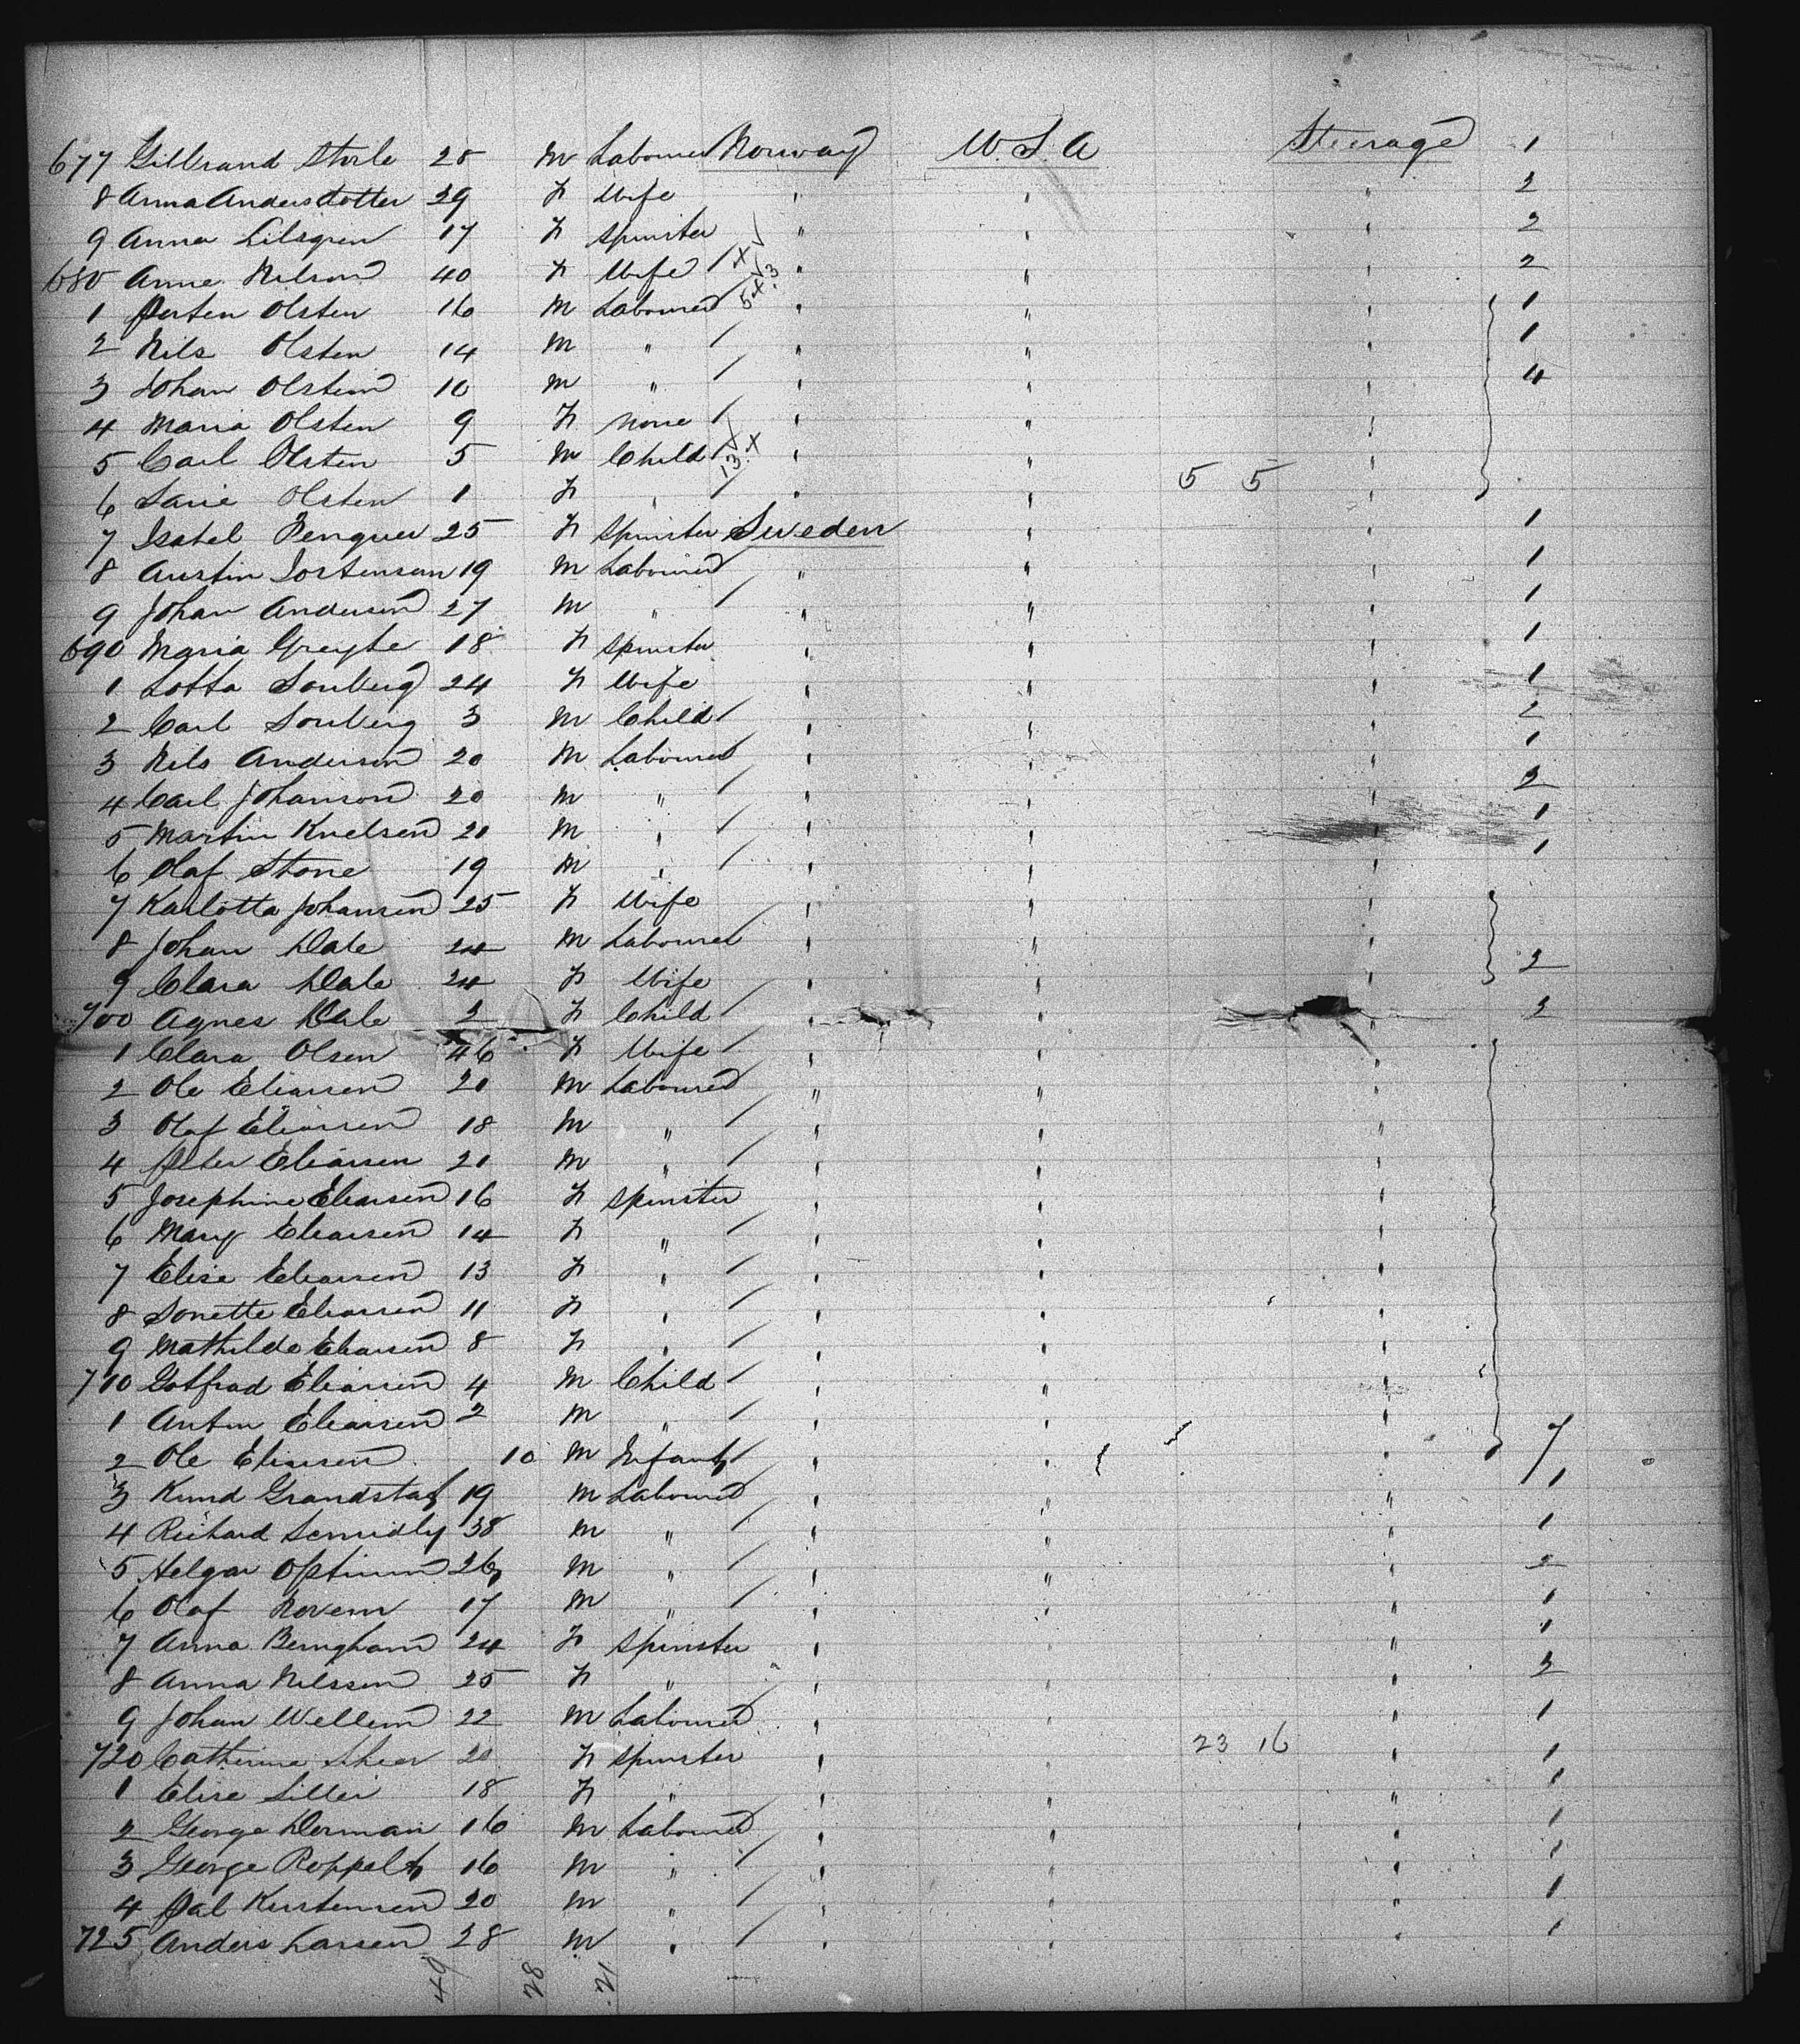 677 Gilbrand Storle 28 M Labourer Norway U.S.A Steerage 1
8 Anna Andersdotter 29 F Wife " " " 2
9 Anna Lilsgren 17 F Spinster " " " 2
680 Anne Nilson 40 F Wife " " " 2
1 Perten Olsten 16 M Labourer " " " 1
2 Nils Olsten 14 M " " " " 1
3 Johan Olsten 10 M " " " " 4
4 Maria Olsten 9 F none " " "
5 Carl Olsten 5 M Child " " "
6 Sarie Olsten 1 F " " " 5 5 "
7 Isabel Penquer 25 F Spinster Sweden " " 1
8 Austin Tortenson 19 M Labourer " " " 1
9 Johan Anderson 27 M " " " " 1
690 Maria Greybe 18 F Spinster " " " 1
1 Lotta Sonberg 24 F Wife " " " 1
2 Carl Sonberg 3 M Child " " " 2
3 Nils Anderson 20 M Labourer " " " 1
4 Carl Johanson 20 M " " " " 2
5 Martin Knelsen 20 M " " " " 1
6 Olaf Stone 19 M " " " " 1
7 Karlotta Johansen 25 F Wife " " "
8 Johan Dale 24 M Labourer " " "
9 Clara Dale 24 F Wife " " " 2
700 Agnes Dale 2 F Child " " " 2
1 Clara Olsen 46 F Wife " " "
2 Ole Eliassen 20 M Labourer " " "
3 Olaf Eliassen 18 M " " " "
4 Peter Eliassen 20 M " " " "
5 Josephine Eliassen 16 F Spinster " " "
6 Mary Eliassen 14 F " " " "
7 Elise Eliassen 13 F " " " "
8 Sonette Eliassen 11 F " " " "
9 Mathilde Eliassen 8 F " " " "
710 Gotfrad Eliassen 4 M Child " " "
1 Anton Eliassen 2 M " " " "
2 Ole Eliassen 10 M Infant " " " 7
3 Knud Grandstad 19 M Labourer " " " 1
4 Richard Semidly 38 M " " " " 1
5 Helgar Optinum 26 M " " " " 2
6 Olaf Novem 17 M " " " " 1
7 Anna Bengham 24 F Spinster " " " 1
8 Anna Nilssen 25 F " " " " 2
9 Johan Wellem 22 M Labourer " " " 1
720 Catherine Shear 20 F Spinster " " 23 16 " 1
1 Elise Siller 18 F " " " " 1
2 George Dorman 16 M Labourer " " " 1
3 George Roppelt 16 M " " " " 1
4 Pal Kustensen 20 M " " " " 1
725 Anders Larsen 28 M " " " " 1
49 28 21